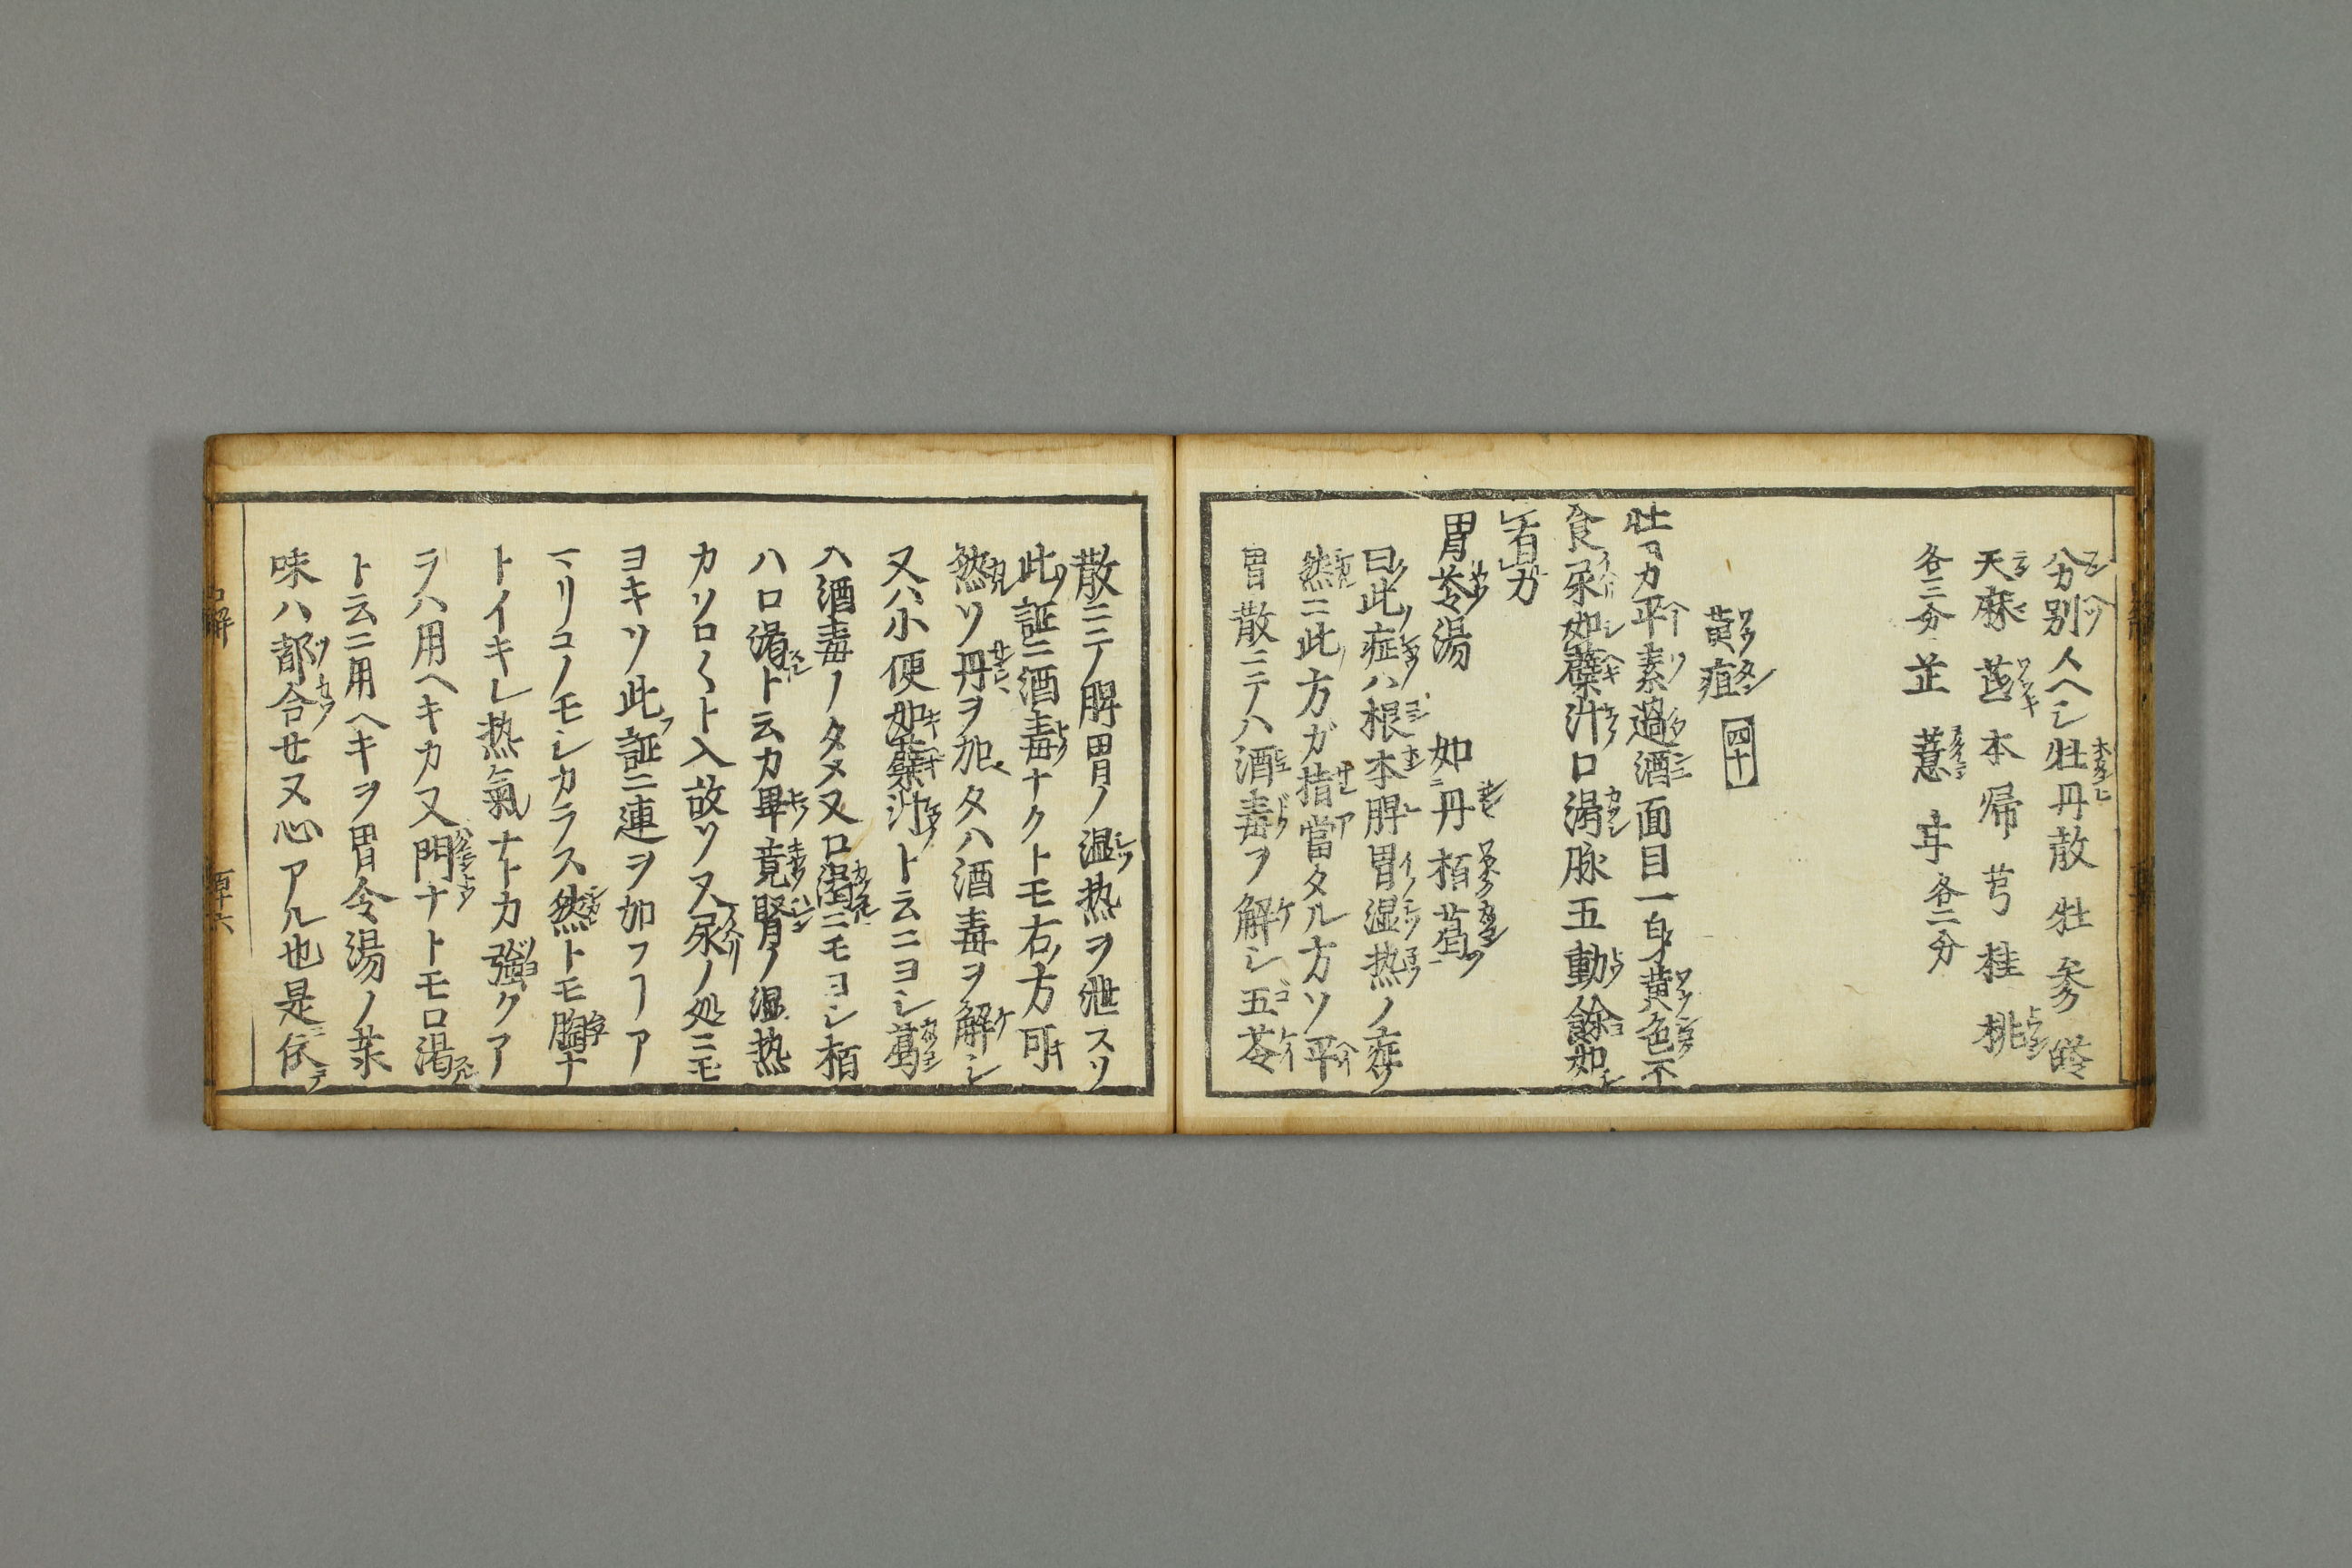 分別スヘシ牡丹散牡参
天麻 本帰芎桂桃
各三分芷薏 各二分
黄疸 四十
壮 カ平素過酒面目一身黄色不
食尿如蘗汁口渇脉五動餘如
胃苓湯 如丹 栢葛
曰此症ハ根本脾胃湿热ノ症ソ
然ニ此方ガ措當タル方ソ平
胃散ニテハ酒毒ヲ解シ五苓
散ニテノ脾胃ノ温热ヲ泄スソ
此証ニ酒毒ナクトモ右ノ方可
然ソ丹ヲ加ヘタハ酒毒ヲ解シ
又ハ小便如蘗汁ト云ニヨシ葛
ハ酒毒ノタメ又口渇ニモヨシ栢
ハ口渇ト云カ畢竟腎ノ湿热
カソロ〱ト入故ソ又尿ノ処ニモ
ヨキソ此証ニ連ヲ加フヿア
マリコノモシカラス然トモ胸ナ
トイキレ热氣ナトカ強クア
ラハ用ヘキカ又 ナトモ口渇
ト云ニ用ヘキヲ胃令湯ノ薬
味ハ都合セヌ心アル也是依テ